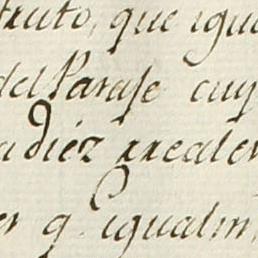 fruto, que igua
del Parage cuy
a diez rreales
es q. igualm